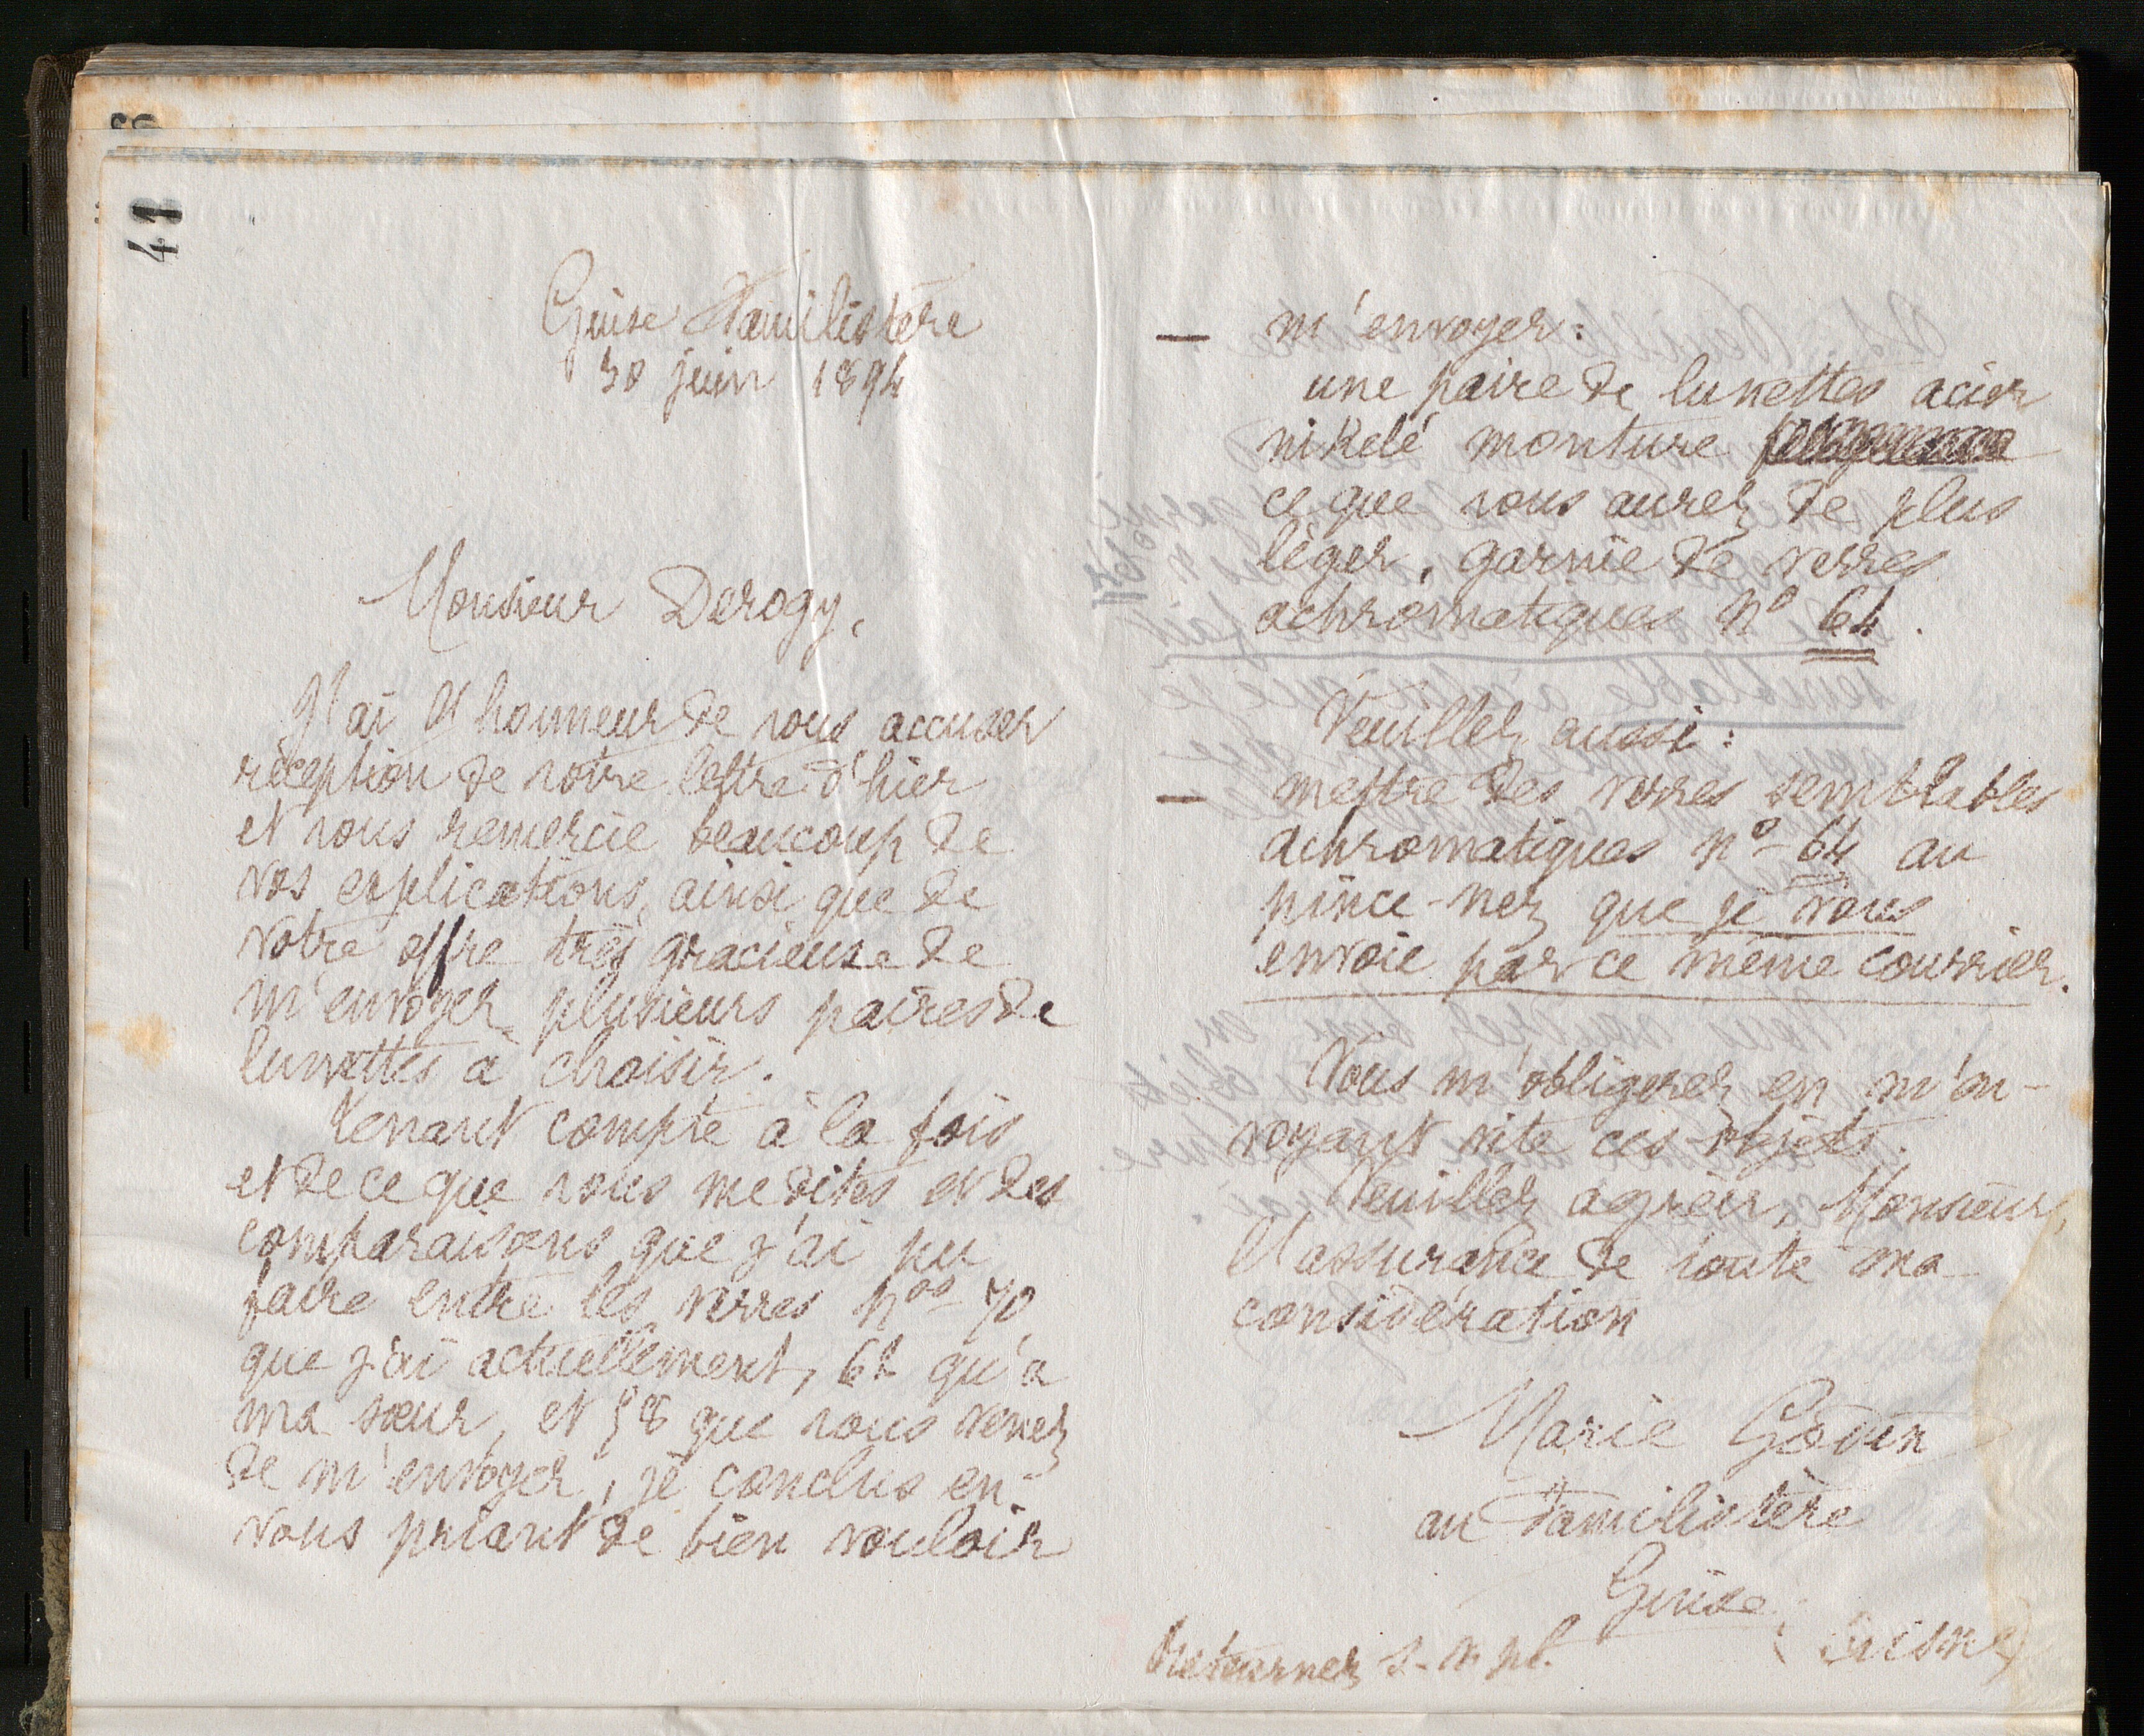 41
Guise Familistère
30 juin 1894
Monsieur Derogy,
J'ai l'honneur de vous accuser
réception de votre lettre d'hier
et vous remercie beaucoup de
vos explications, ainsi que de
votre offre très gracieuse de
m'envoyer plusieurs paires de
lunettes à choisir.
Tenant compte à la fois
et de ce que vous me dites et des
comparaisons que j'ai pu
faire entre les verres nos 70
que j'ai actuellement, 62 qu'a
ma sœur, et 58 que vous venez
de m'envoyer, je conclus en
vous priant de bien vouloir
— m'envoyer:
une paire de lunettes acier
nikelé monture
ce que vous aurez de plus
léger, garnie de verres
achromatiques no 64.
Veuillez aussi:
— mettre des verres semblables
achromatiques no 64 au
pince-nez que je vous
envoie par ce même courrier.
Vous m'obligerez en m'en-
voyant vite ces objets.
Veuillez agréer, Monsieur,
l'assurance de toute ma
considération
Marie Godin
au Familistère
Guise
(Aisne)
Retournez s. v. pl.